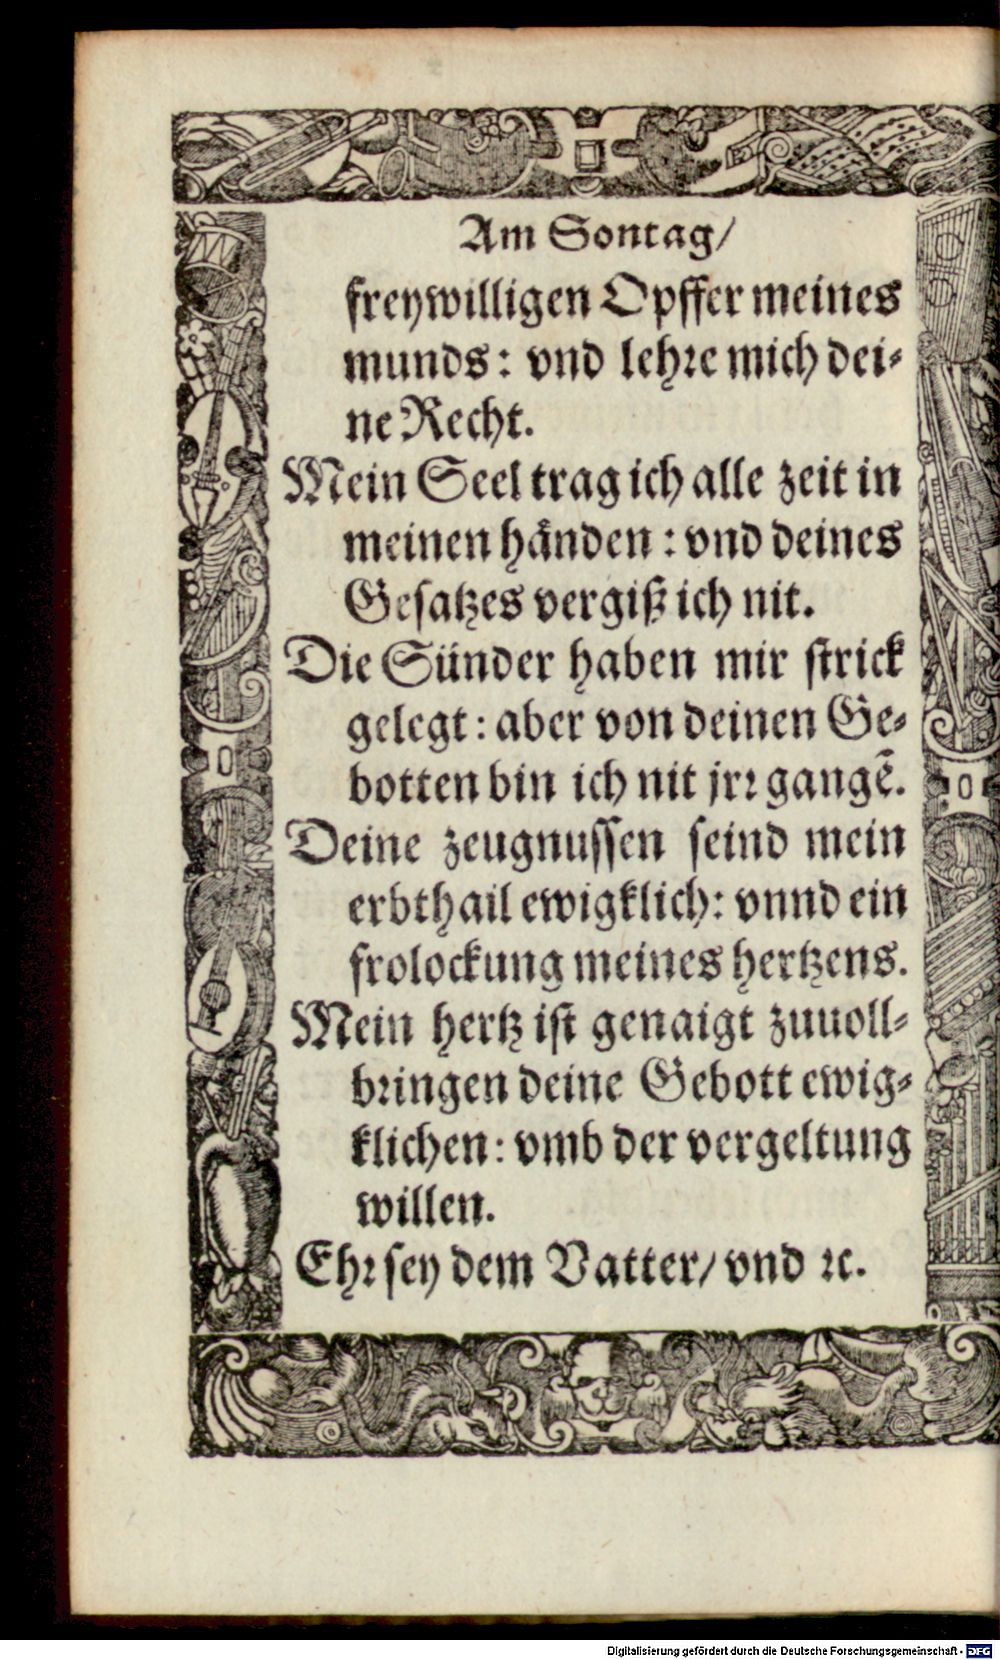 Am Sontag/
freywilligen Opffer meines
munds: vnd lehꝛe mich dei⸗
ne Recht.
Mein Seel trag ich alle zeit in
meinen hånden: vnd deines
Gesatzes vergiß ich nit.
Die Sünder haben mir strick
gelegt: aber von deinen Ge⸗
botten bin ich nit jrꝛ gangẽ.
Deine zeugnussen seind mein
erbthail ewigklich: vnnd ein
frolockung meines hertzens.
Mein hertz ist genaigt zuuoll⸗
bꝛingen deine Gebott ewig⸗
klichen: vmb der vergeltung
willen.
Ehꝛ sey dem Vatter/ vnd ꝛc.
Digitalisierung gefördert durch die Deutsche Forschungsgemeinschaft - DFG